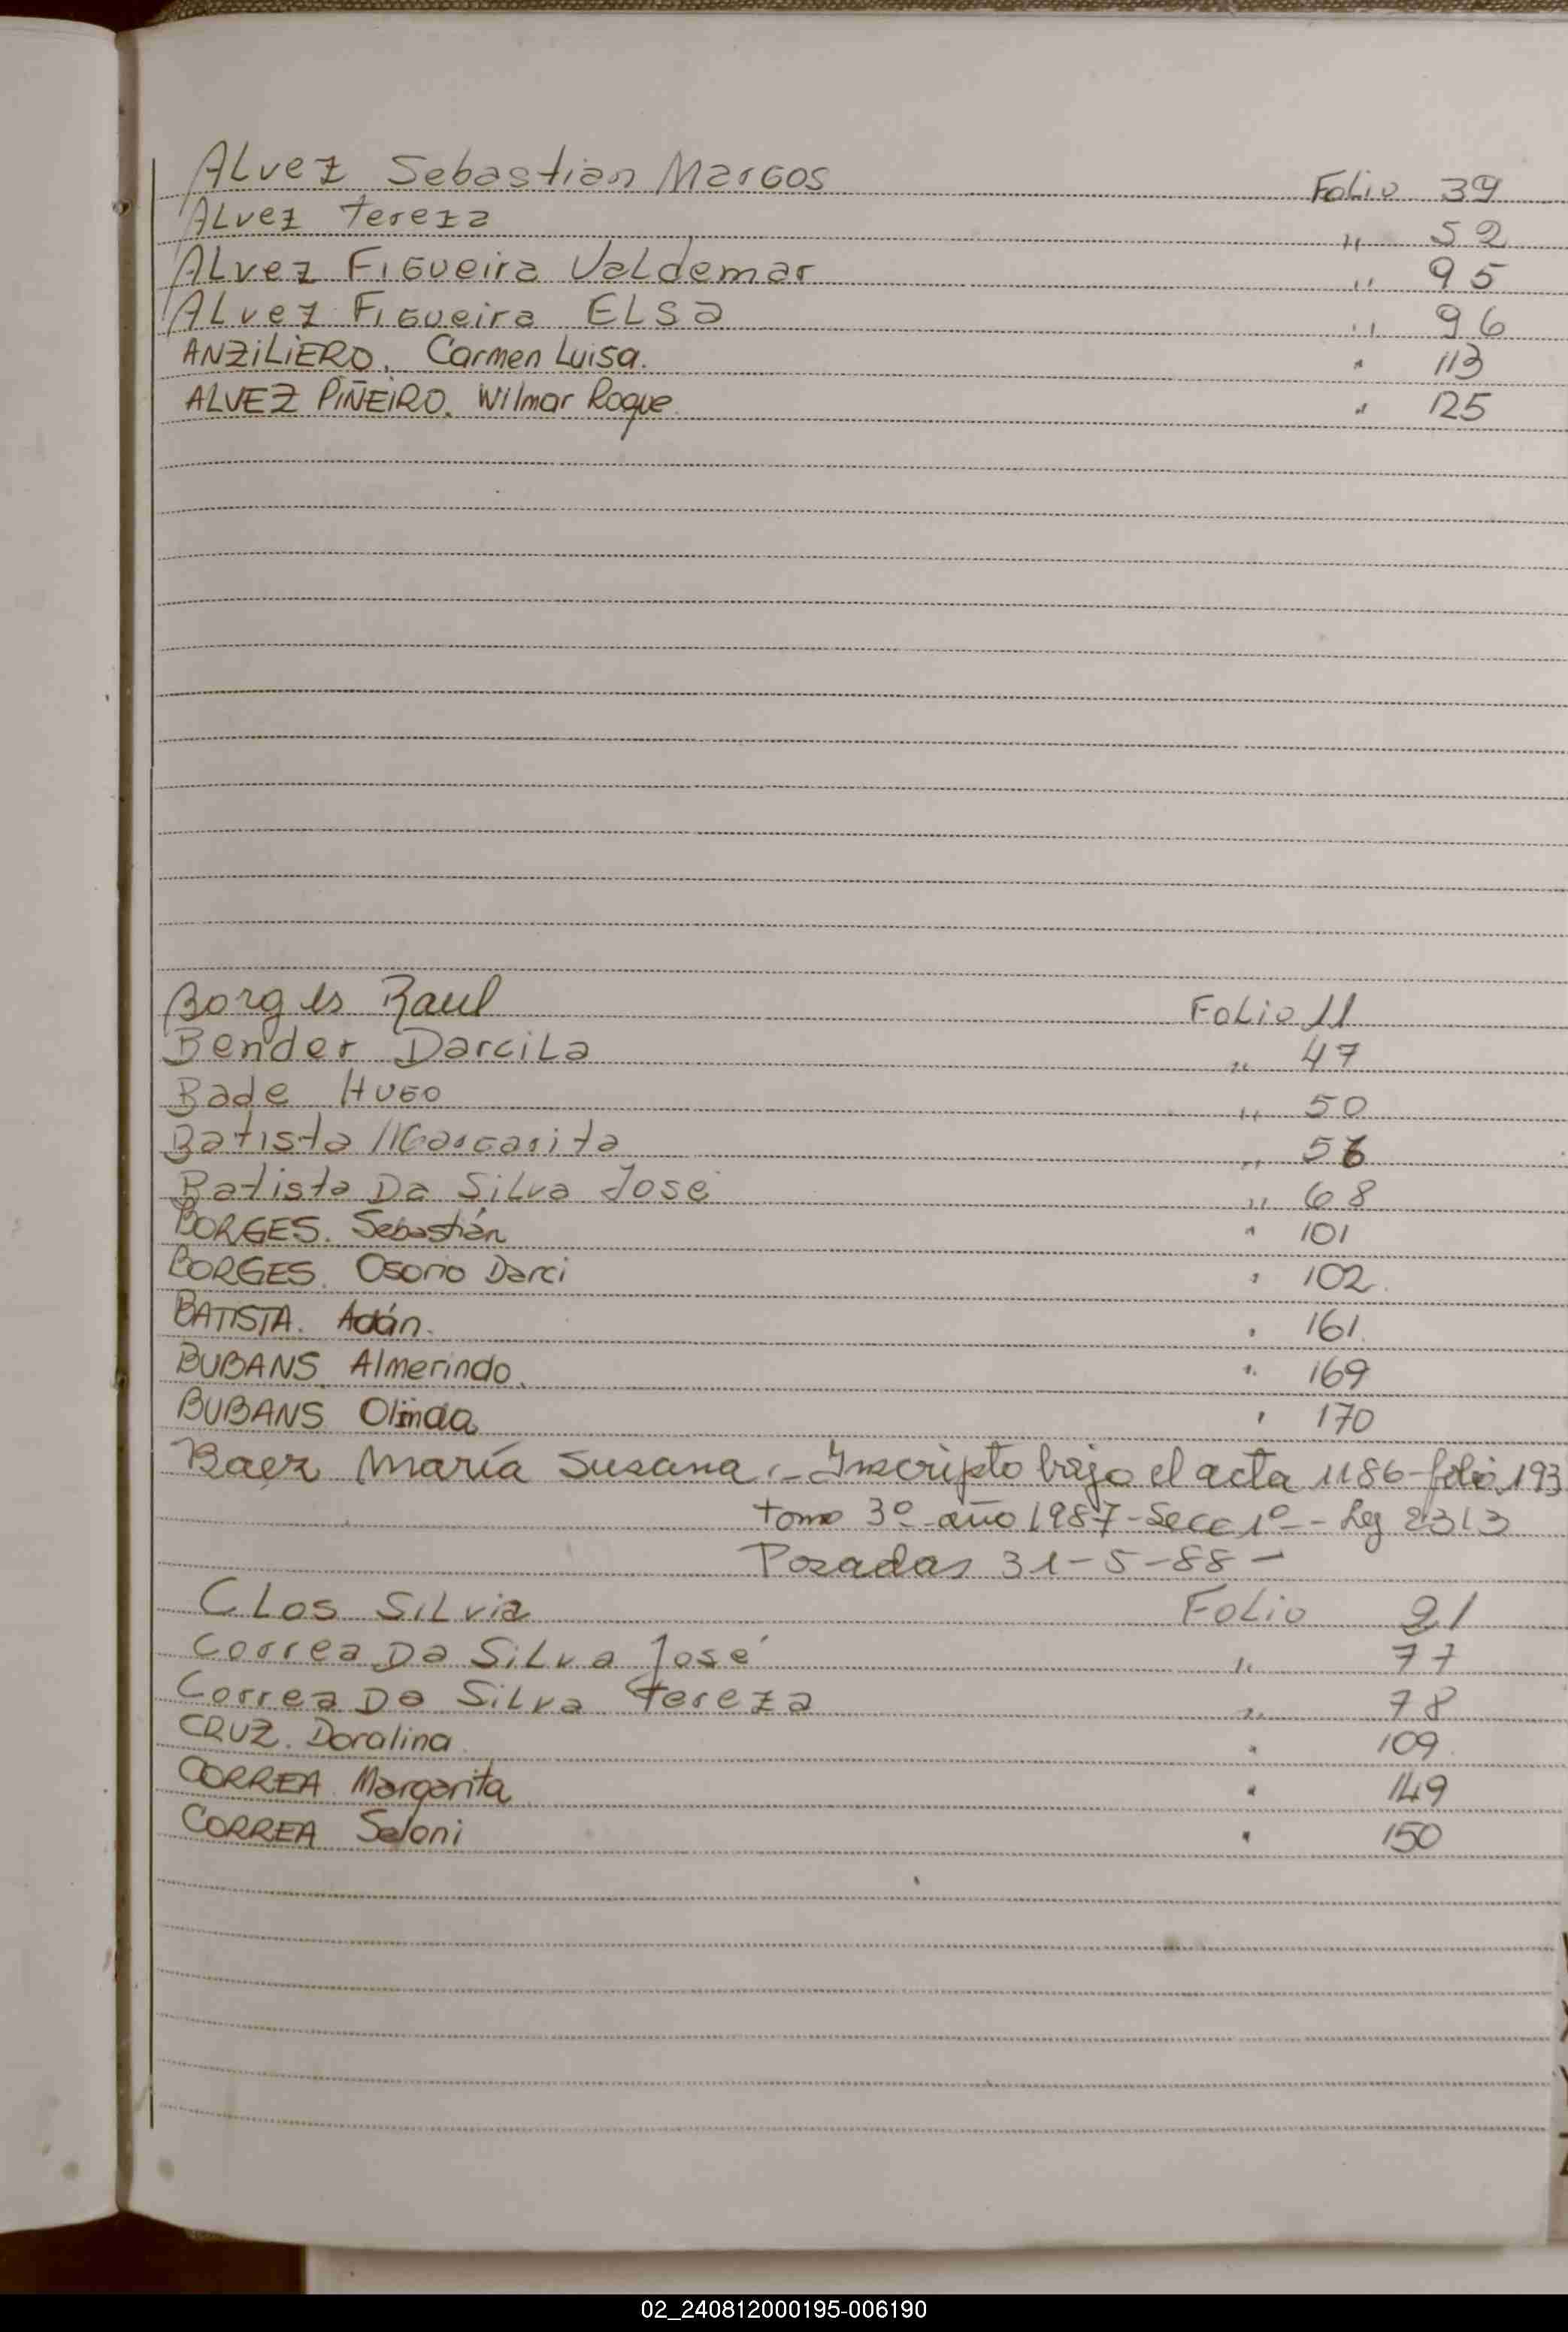 Alvez Sebastian Marcos Folio 39
Alvez Tereza " 52
Alvez Figueira Valdemar " 95
Alvez Figueira Elsa " 96
ANZiLiERO, Carmen Luisa. " 113
ALVEZ PiÑEiRO. Wilmar Roque " 125
Borges Raul Folio 11
Bender Darcila " 47
Bade Hugo " 50
Batista Margarita " 56
Batista Da Silva José " 68
BORGES. Sebastián " 101
BORGES. Osorio Darci " 102
BATISTA. Adán. " 161
BUBANS Almerindo. " 169
BUBANS Olinda " 170
Baez María Susana.- Inscripto bajo el acta 1186-folio 193
tomo 3º-año 1987-Secc 1º-- Ley 2313
Posadas 31-5-88-
Clos Silvia Folio 21
Correa Da Silva José " 77
Correa Da Silva Tereza " 78
CRUZ. Doralina " 109
CORREA Margarita " 149
CORREA Seloni " 150
02_240812000195-006190